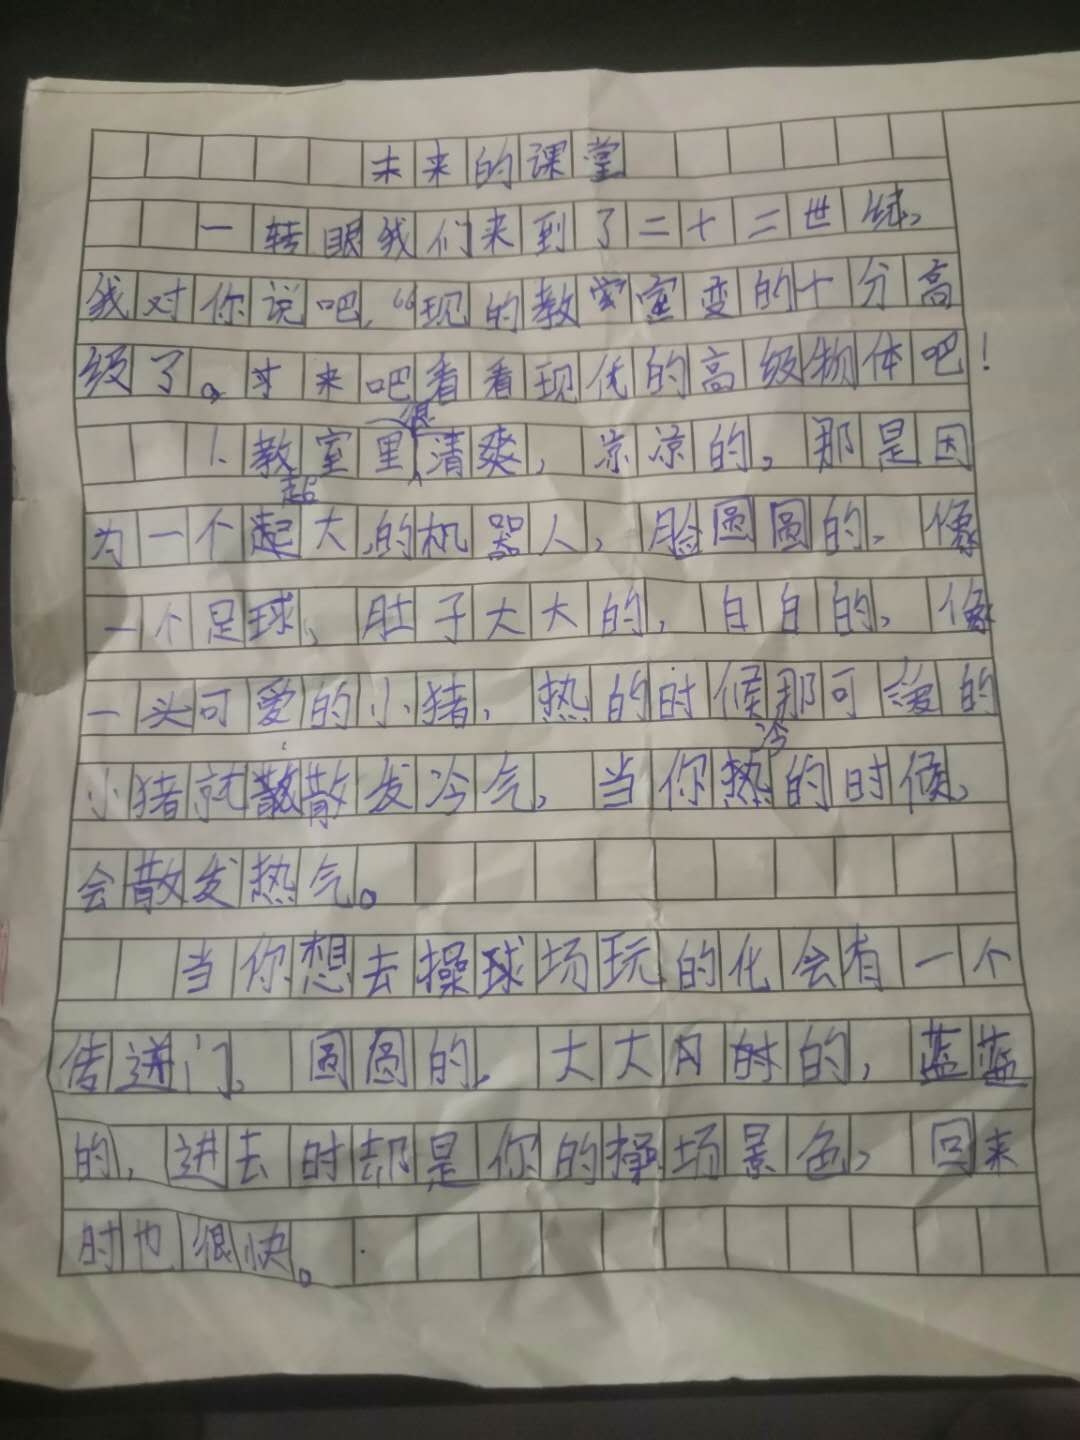 未来的课堂
一转眼我们来到了二十二世纪,
我对你说吧,“现的教室变的十分高
级了。才来吧看看现代的高级物体吧!
1.教室里很清爽,凉凉的,那是因
为一个超大的机器人,脸圆圆的,像
一个足球,肚子大大的,白白的,像
一头可爱的小猪,热的时候那可爱的
小猪就散发冷气,当你冷的时候,
会散发热气。
当你想去操球场玩的化会有一个
传送门,圆圆的,大大的,蓝蓝
的,进去时却是你的操场景色,回来
时也很快。